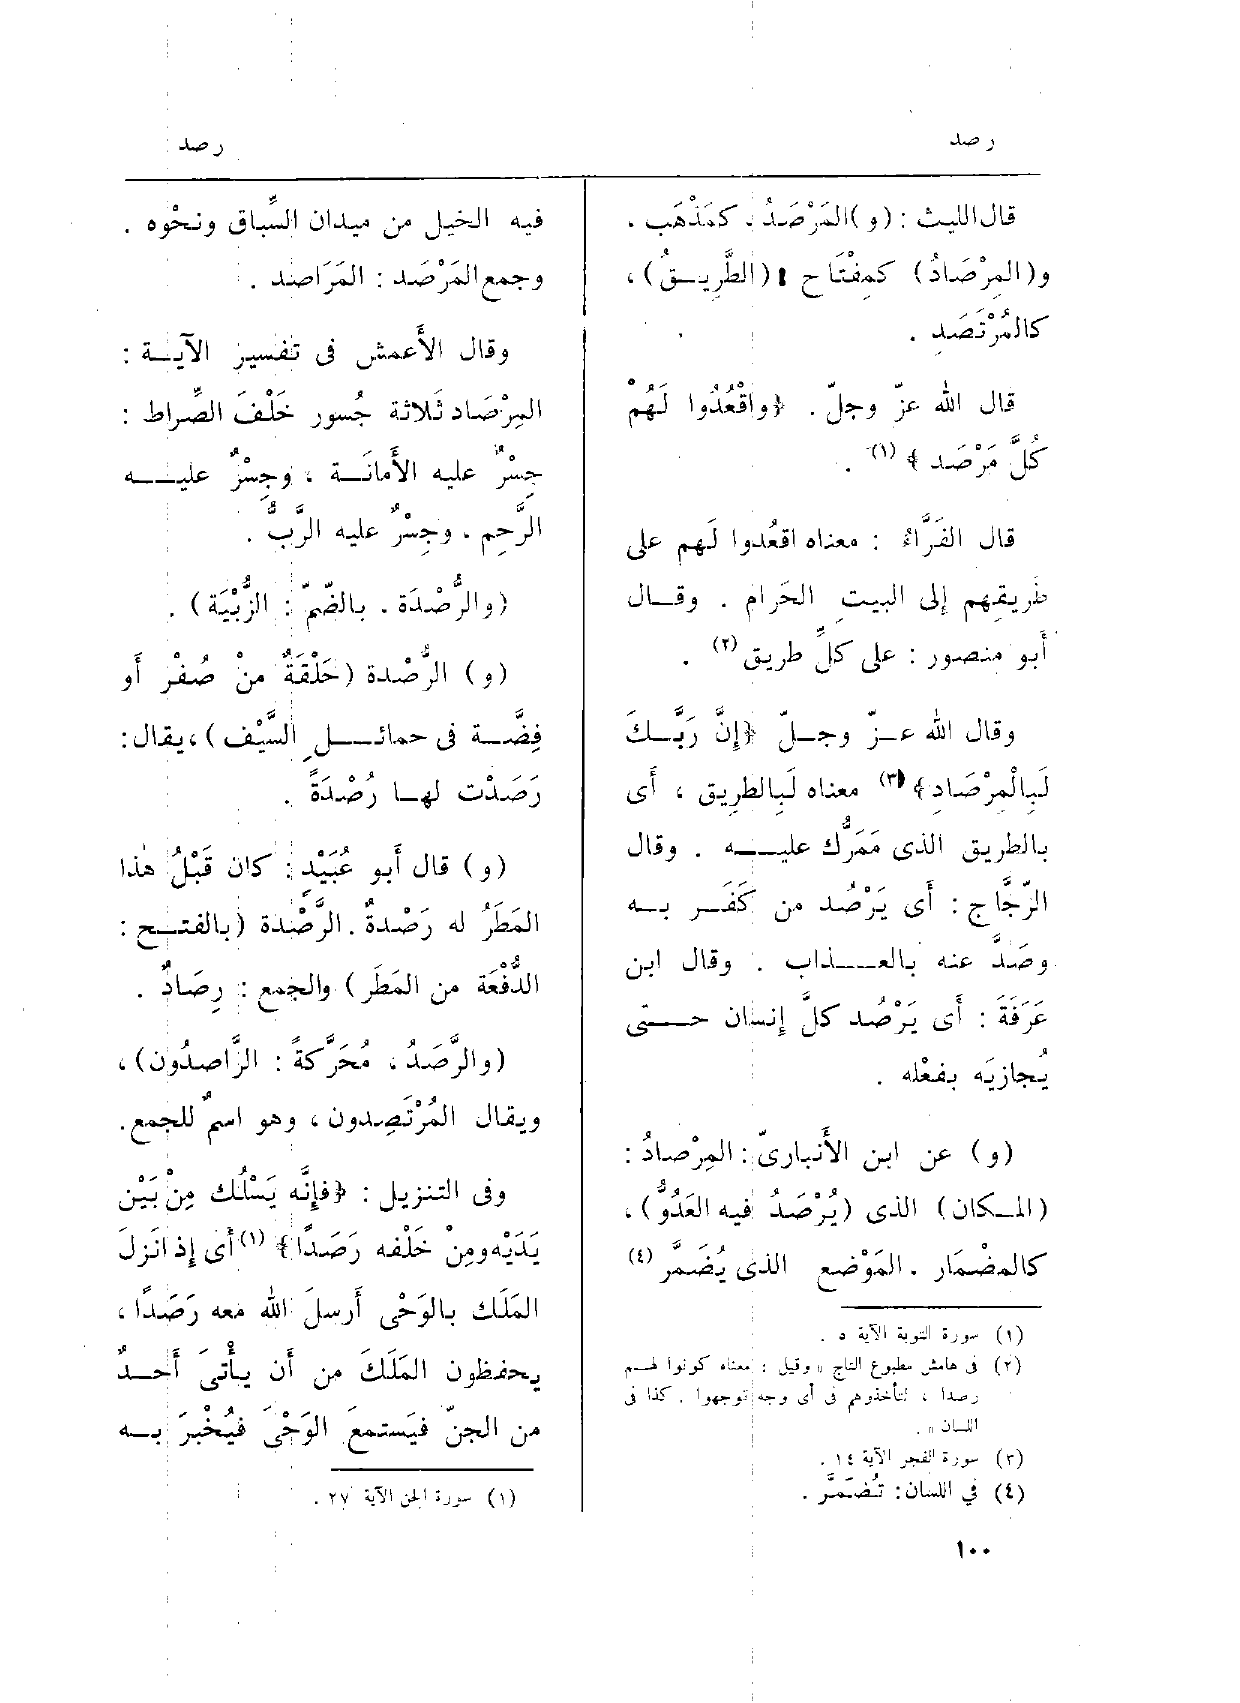 رصد
رصد
قال الليث : (و) المَرْصَدُ ، كمَذْهَب ،
و(المِرْصَادُ) كمِفْتَاح : (الطَّرِيــقُ) ،
كالمُرْتَصَد .
قال الله عزّ وجلّ . ﴿واقْعُدُوا لَهُمْ
كُلَّ مَرْصَد ﴾ (١) .
قال الفَرَّاءُ : معناه اقعُدوا لَهم على
طريقِهم إلى البيتِ الحَرام . وقــال
أبو منصور : على كلِّ طريق (٢) .
وقال الله عــزّ وجــلّ ﴿إنَّ رَبَّــكَ
لَبِالْمِرْصَادِ﴾ (٣) معناه لَبِالطرِيق ، أَى
بالطريق الذى مَمَرُّك عليــــه . وقال
الزّجَّاج : أَى يَرْصُد من كَفَــر بــه
وصَدَّ عنه بالعـــذاب . وقال ابن
عَرَفَةَ : أَى يَرْصُد كلَّ إنسان حـــتى
يُجازيَه بفعْله .
(و) عن ابن الأَنبارىّ : المِرْصادُ :
(المــكان) الذى (يُرْصَدُ فيه العَدُوُّ) ،
كالمضْمَار . المَوْضع الذى يُضَمَّر (٤)
(١) سورة التوبة الآية ٥ .
(٢) فى هامش مطبوع التاج « وقيل : معناه كونوا لهــم
رصدا ، لتأخذوهم فى أى وجه توجهوا . كذا فى
اللسان » .
(٣) سورة الفجر الآية ١٤ .
(٤) في اللسان : تُضَمَّر .
فيه الخيل من ميدان السِّباق ونحْوه .
وجمع المَرْصَد : المَرَاصد .
وقال الأَعمش فى تفسير الآيــة :
المِرْصَاد ثَلاثة جُسور خَلْفَ الصِّراط :
جِسْرٌ عليه الأَمانَــة ، وجِسْرٌ عليـــه
الرَّحِم ، وجِسْرٌ عليه الرَّبُّ .
(والرُّصْدَة ، بالضّمّ : الزُّبْيَة) .
(و) الرُّصْدة (حَلْقَةٌ منْ صُفْر أو
فِضَّــة فى حمائــــلِ السَّيْف) ، يقال :
رَصَدْت لهــا رُصْدَةً .
(و) قال أَبو عُبَيْدٍ : كان قَبْلُ هٰذا
المَطَرُ له رَصْدةٌ . الرَّصْدة (بالفتــح :
الدُّفْعَة من المَطَر) والجمع : رِصَادٌ .
(والرَّصَدُ ، مُحَرَّكةً : الرَّاصدُون) ،
ويقال المُرْتَصِدون ، وهو اسمٌ للجمع.
وفى التنزيل : ﴿فإنَّه يَسْلُك مِنْ بَيْن
يَدَيْه ومِنْ خَلْفه رَصَدًا﴾ (١) أَى إذ اَنزلَ
المَلَك بالوَحْى أَرسلَ الله معه رَصَدًا ،
يحفظون المَلَكَ من أَن يأْتىَ أَحــدٌ
من الجنّ فيَستمعَ الوَحْىَ فيُخْبرَ بــه
(١) سورة الجن الآية ٢٧ .
١٠٠